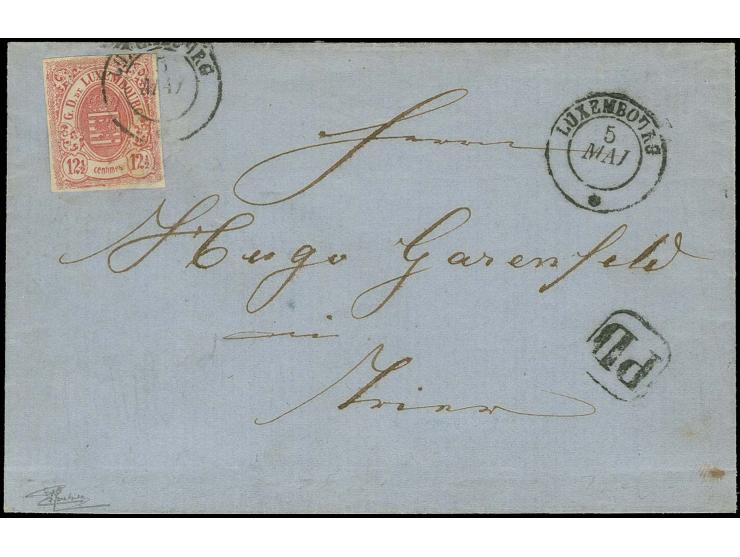 LUXEMBOURG
5
MAI
G.D. DE LUXEMBOURG
12½ 12½
CENTIMES
LUXEMBOURG
5
MAI
Herrn
Hugo Garenfeld
in
Trier
PD